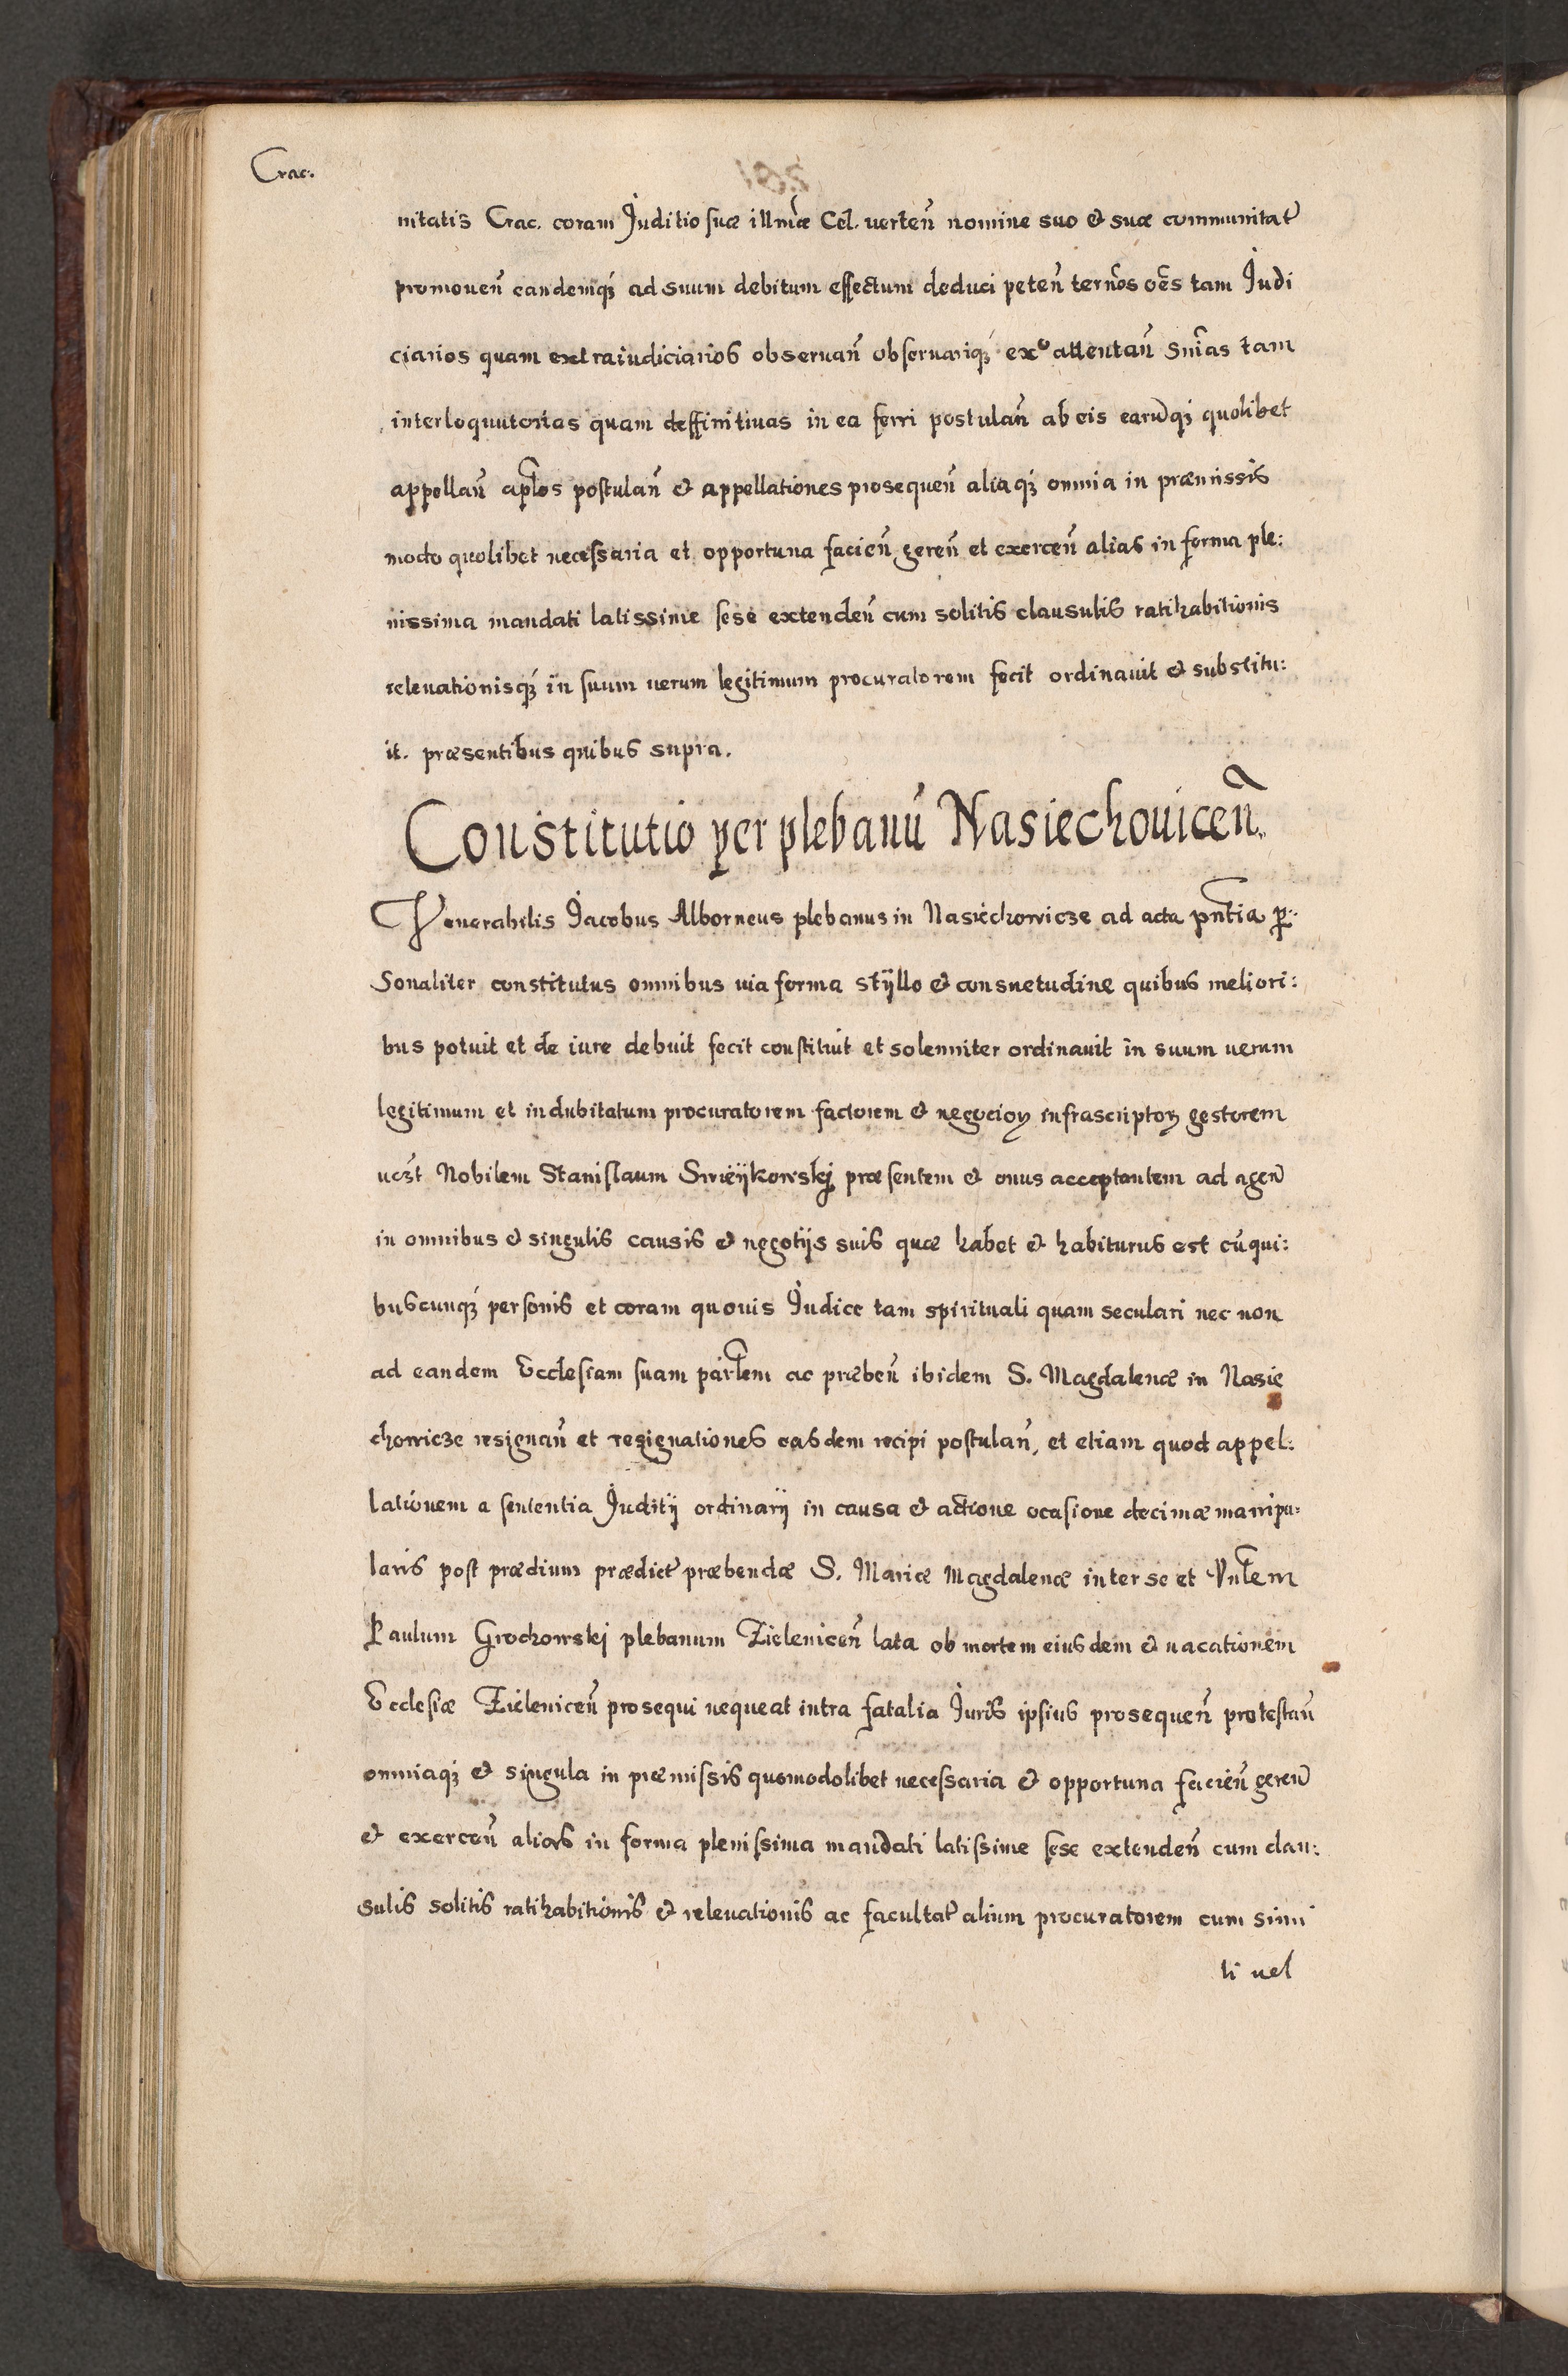 Crac.
nitatis Crac. coram Juditio suæ illmæ Cel. verteñ nomine suo & suæ communitat̃
promoueñ eandemq̃ ad suum debitum effectum deduci peteñ termos oẽs tam Judi
ciarios quam extraiudiciarios obseruañ obseruariq̃ exᵒ attentañ sñias tam
interloquutorias quam deffinitiuas in ea ferri postulañ ab eis earũq̃ quolibet
appellañ aplos postulañ & appellationes prosequeñ aliaq̃ omnia in præmissis
modo quolibet necessaria et opportuna facieñ gereñ et exerceñ alias in forma ple:
nissima mandati latissime sese extendeñ cum solitis clausulis ratihabitionis
releuationisq̃ in suum uerum legitimum procuratorem fecit ordinauit & substitu:
it. præsentibus quibus supra.
Constitutio per plebanũ Nasiechouiceñ.
Venerabilis Jacobus Alborneus plebanus in Nasiechowicze ad acta pñtia per
sonaliter constitutus omnibus uia forma styllo & consuetudine quibus meliori:
bus potuit et de iure debuit fecit constituit et solenniter ordinauit in suum uerum
legitimum et indubitatum procuratorem factorem & negocioꝝ infrascriptoꝝ gestorem
uc̃zt Nobilem Stanislaum Swieykowskj præsentem & onus acceptantem ad ageñ
in omnibus & singulis causis & negotijs suis quæ habet & habiturus est cũ qui:
buscunq̃ personis et coram quouis Judice tam spirituali quam seculari nec non
ad eandem Ecclesiam suam parlem ac præbeñ ibidem S. Magdalenæ in Nasie
chowicze resignañ et resignationes easdem recipi postulañ, et etiam quod appel:
lationem a sententia Juditij ordinarij in causa & actione ocasione decimæ manipu:
laris post prædium prædict̃ præbendæ S. Mariæ Magdalenæ inter se et Vnlem
Paulum Grochowskj plebanum Zieleniceñ lata ob mortem eiusdem & uacationem
Ecclesiæ Zieleniceñ prosequi nequeat intra fatalia Juris ipsius prosequeñ protestañ
omniaq̃ & singula in præmissis quomodolibet necessaria & opportuna facieñ gereñ
& exerceñ alias in forma plenissima mandati latissime sese extendeñ cum clau:
sulis solitis ratihabitionis & releuationis ac facultat̃ alium procuratorem cum simi
li uel